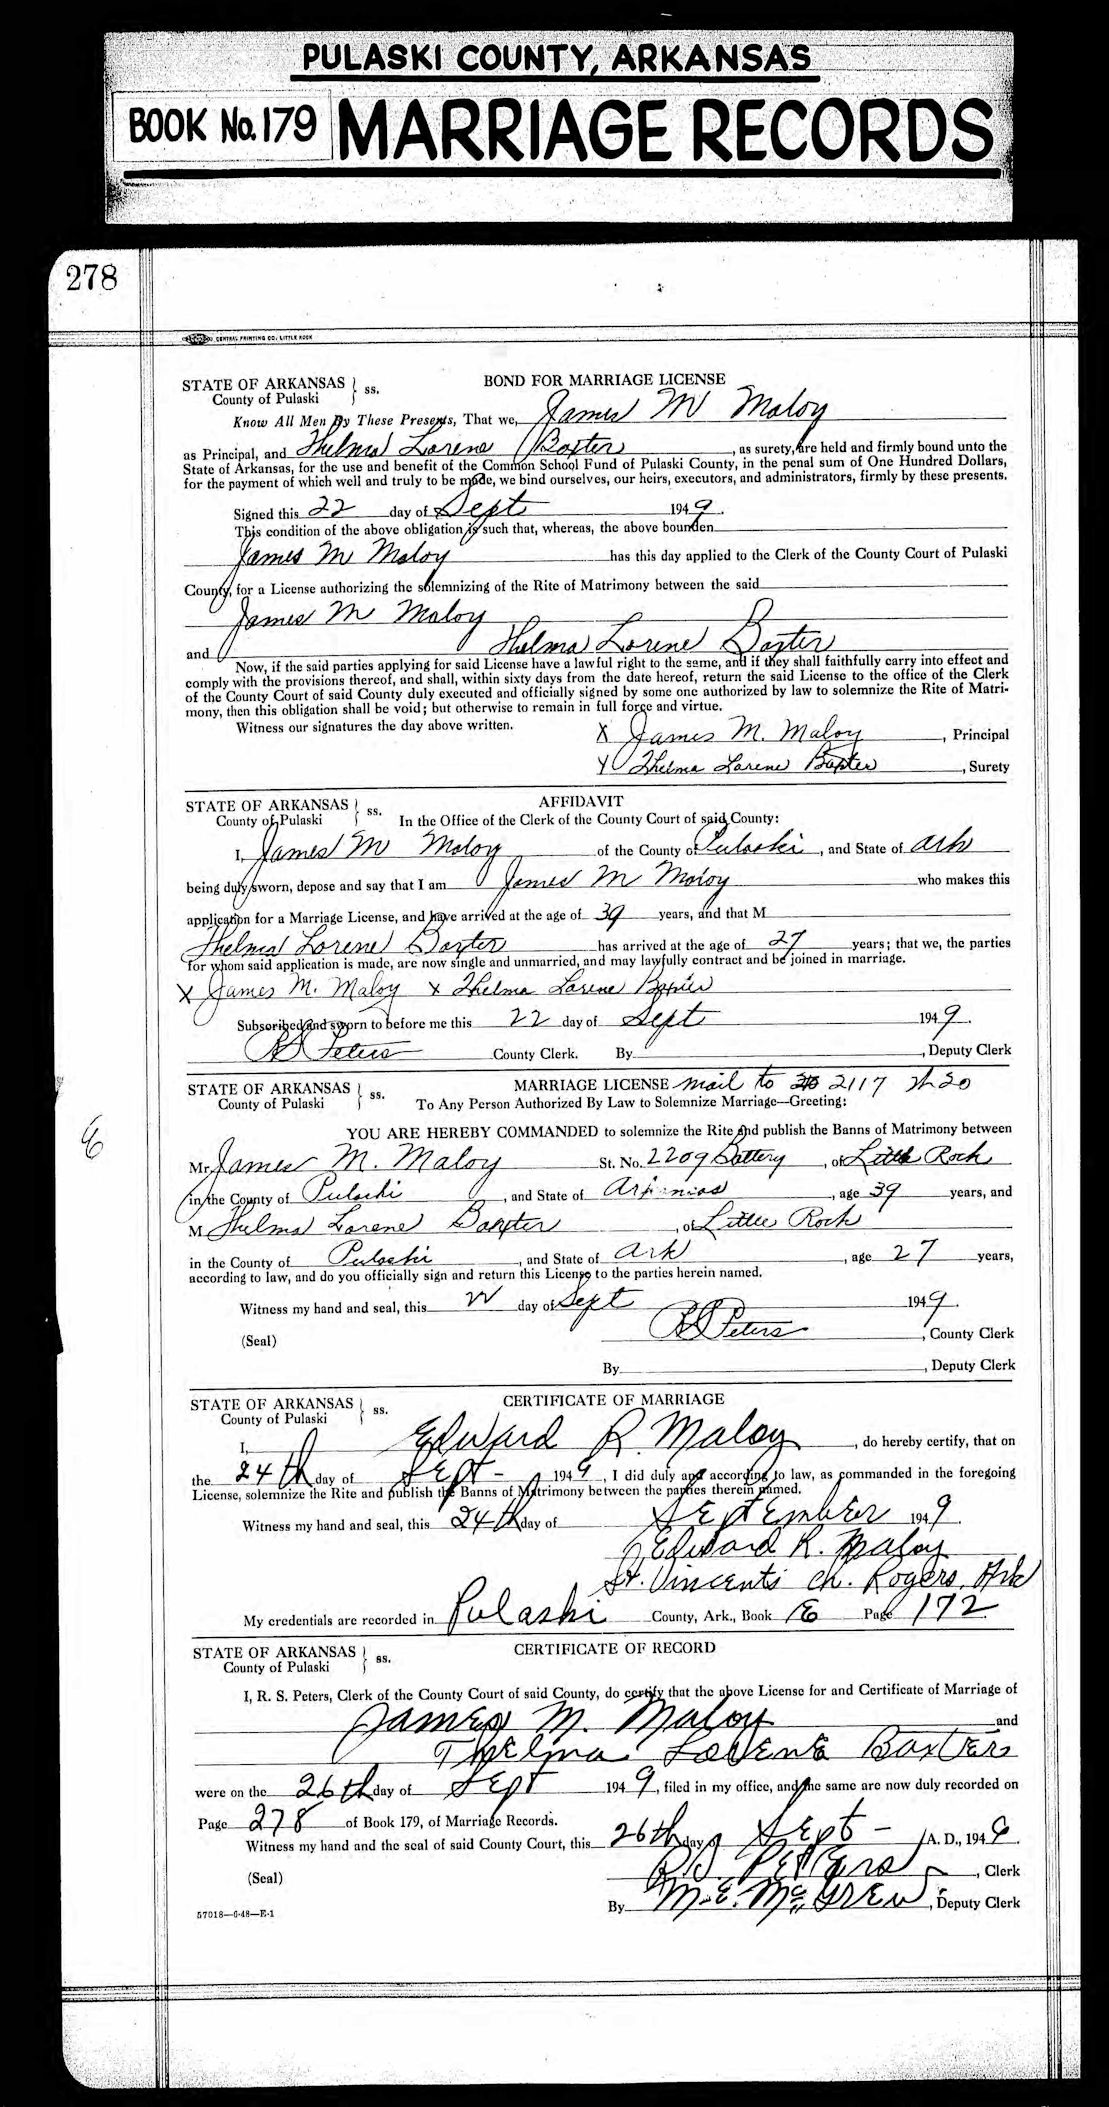 PULASKI COUNTY, ARKANSAS
BOOK No. 179 MARRIAGE RECORDS
278
CENTRAL PRINTING CO. LITTLE ROCK
STATE OF ARKANSAS } ss. BOND FOR MARRIAGE LICENSE
County of Pulaski
Know All Men By These Presents, That we, James M Maloy
as Principal, and Thelma Lorene Baxter, as surety, are held and firmly bound unto the
State of Arkansas, for the use and benefit of the Common School Fund of Pulaski County, in the penal sum of One Hundred Dollars,
for the payment of which well and truly to be made, we bind ourselves, our heirs, executors, and administrators, firmly by these presents.
Signed this 22 day of Sept 1949.
This condition of the above obligation is such that, whereas, the above bounden
James M Maloy has this day applied to the Clerk of the County Court of Pulaski
County, for a License authorizing the solemnizing of the Rite of Matrimony between the said
James M Maloy
and Thelma Lorene Baxter
Now, if the said parties applying for said License have a lawful right to the same, and if they shall faithfully carry into effect and
comply with the provisions thereof, and shall, within sixty days from the date hereof, return the said License to the office of the Clerk
of the County Court of said County duly executed and officially signed by some one authorized by law to solemnize the Rite of Matri-
mony, then this obligation shall be void; but otherwise to remain in full force and virtue.
Witness our signatures the day above written.
X James M. Maloy, Principal
X Thelma Lorene Baxter, Surety
STATE OF ARKANSAS } ss. AFFIDAVIT
County of Pulaski In the Office of the Clerk of the County Court of said County:
I, James M Maloy of the County of Pulaski, and State of Ark
being duly sworn, depose and say that I am James M Maloy who makes this
application for a Marriage License, and have arrived at the age of 39 years, and that M
Thelma Lorene Baxter has arrived at the age of 27 years; that we, the parties
for whom said application is made, are now single and unmarried, and may lawfully contract and be joined in marriage.
X James M. Maloy X Thelma Lorene Baxter
Subscribed and sworn to before me this 22 day of Sept 1949.
RS Peters County Clerk. By , Deputy Clerk
STATE OF ARKANSAS } ss. MARRIAGE LICENSE mail to 2117 W 20
County of Pulaski To Any Person Authorized By Law to Solemnize Marriage—Greeting:
YOU ARE HEREBY COMMANDED to solemnize the Rite and publish the Banns of Matrimony between
Mr. James M. Maloy St. No. 2209 Battery, of Little Rock
in the County of Pulaski, and State of Arkansas, age 39 years, and
M Thelma Lorene Baxter, of Little Rock
in the County of Pulaski, and State of Ark, age 27 years,
according to law, and do you officially sign and return this License to the parties herein named.
Witness my hand and seal, this 22 day of Sept 1949.
(Seal) RS Peters, County Clerk
By , Deputy Clerk
STATE OF ARKANSAS } ss. CERTIFICATE OF MARRIAGE
County of Pulaski
I, Edward R. Maloy, do hereby certify, that on
the 24th day of Sept- 1949, I did duly and according to law, as commanded in the foregoing
License, solemnize the Rite and publish the Banns of Matrimony between the parties therein named.
Witness my hand and seal, this 24th day of September 1949.
Edward R. Maloy
St. Vincents Ch. Rogers, Ark
My credentials are recorded in Pulaski County, Ark., Book E Page 172
STATE OF ARKANSAS } ss. CERTIFICATE OF RECORD
County of Pulaski
I, R. S. Peters, Clerk of the County Court of said County, do certify that the above License for and Certificate of Marriage of
James M. Maloy and
Thelma Lorene Baxter
were on the 26th day of Sept 1949, filed in my office, and the same are now duly recorded on
Page 278 of Book 179, of Marriage Records.
Witness my hand and the seal of said County Court, this 26th day of Sept- A. D., 1949.
(Seal) RS Peters, Clerk
By M.E. McGrew, Deputy Clerk
57018—6-48—E-1